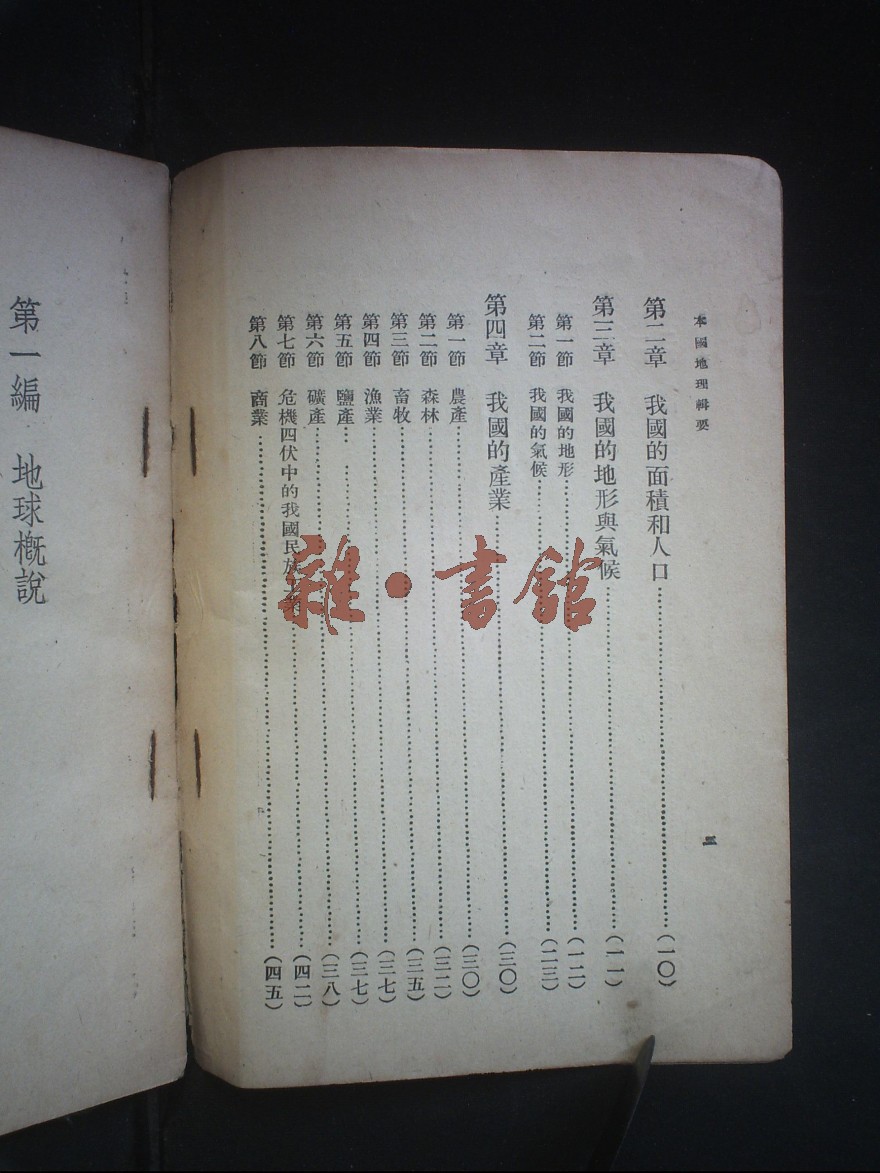 本國地理輯要
第二章　我國的面積和人口……(一〇)
第三章　我國的地形與氣候……(一一)
第一節　我國的地形……(一二)
第二節　我國的氣候……(二三)
第四章　我國的產業……(三〇)
第一節　農產……(三〇)
第二節　森林……(三二)
第三節　畜牧……(三五)
第四節　漁業……(三七)
第五節　鹽產……(三七)
第六節　礦產……(三八)
第七節　危機四伏中的我國民族工業……(四二)
第八節　商業……(四五)
第一編　地球概說
雜·書館